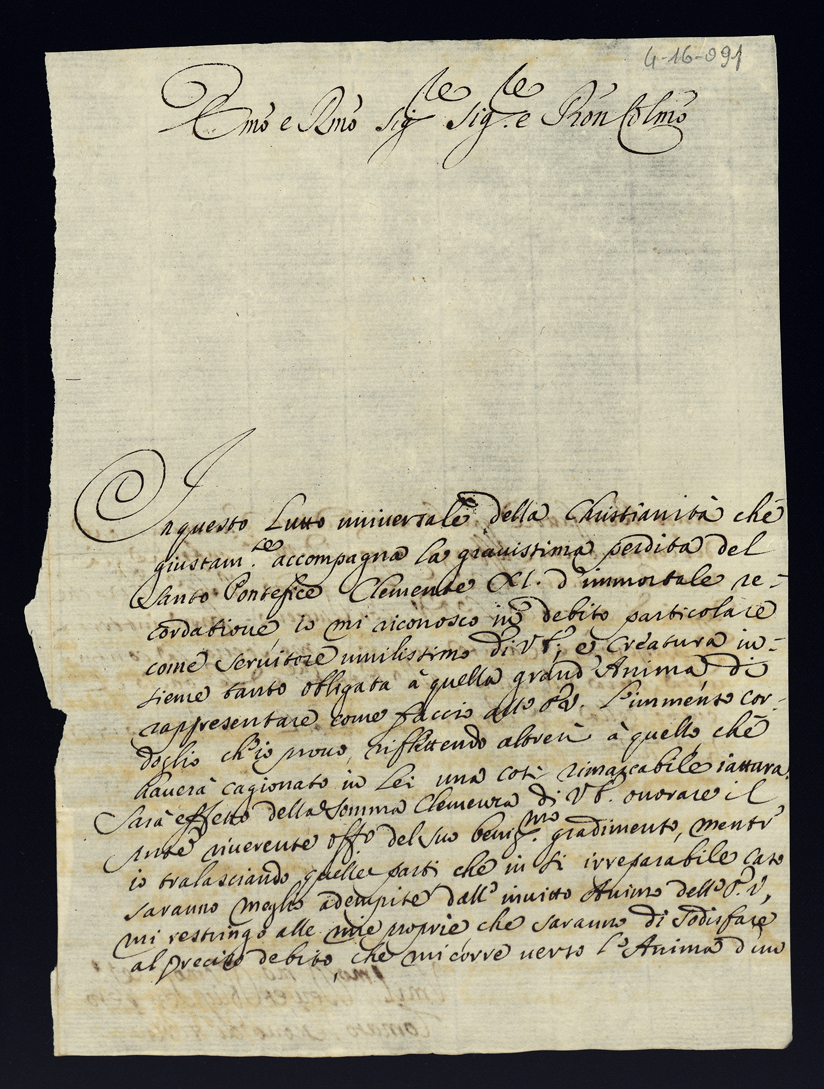 4-16-091
Emo e Rmo Sig.re Sig.re e Pron Colmo
In questo Lutto universale della Christianità che
giustam.te accompagna la gravissima perdita del
Santo Pontefice Clemente XI. d'immortale re-
cordatione io mi riconosco in debito particolare
come servitore umilissimo di V E, e Creatura in-
sieme tanto obligata à quella grand'Anima di
rappresentare come faccio all' E V. l'immenso cor-
doglio ch'io provo, riflettendo altresì à quello che
haverà cagionato in Lei una così rimarcabile iattura.
Sarà effetto della somma Clemenza di V E. onorare il
pnte riverente off.o del suo benig.mo gradimento, mentr'
io tralasciando quelle parti che in sì irreparabile caso
saranno meglio adempite dall' invitto Animo dell' E V,
mi restringo alle mie proprie che saranno di sodisfare
al preciso debito, che mi corre verso l'Anima d'un